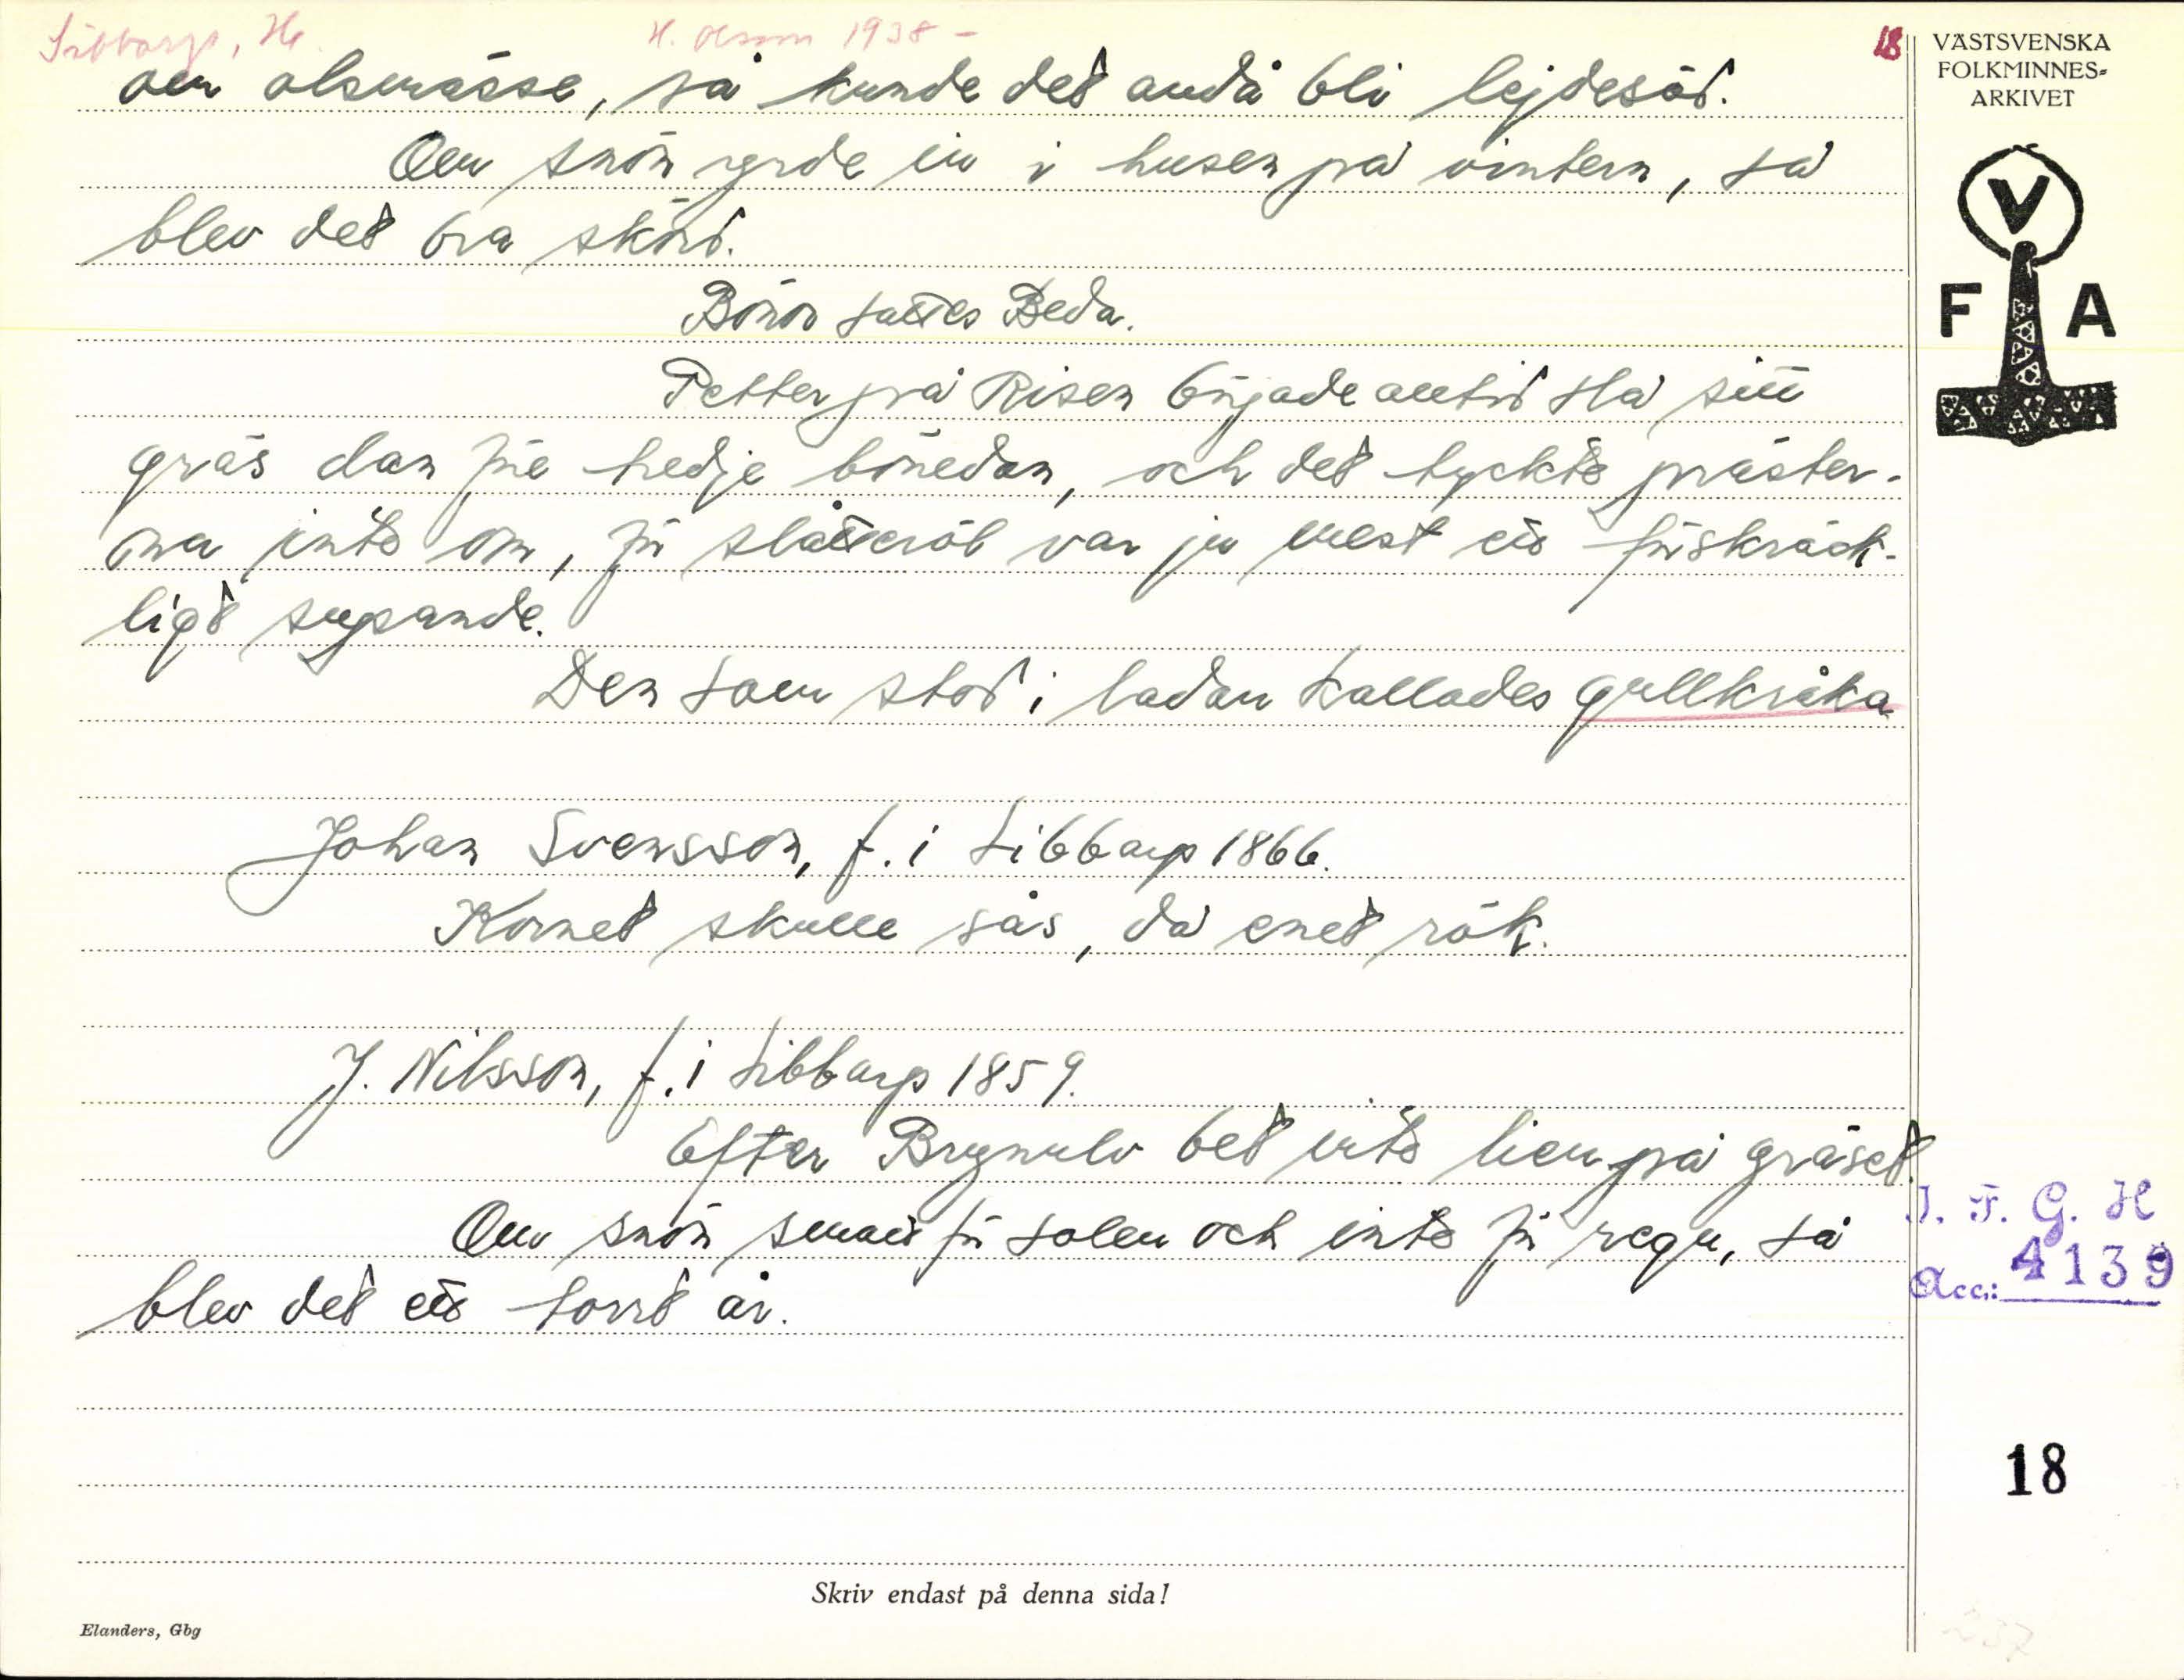 Sibbarp, Ha. H. Olsson 1938 - 18
om olsmässe, så kunde det ändå bli lejdesäd.
Om snön yrde in i husen på vintern, så
blev det bra skörd.
Bönor sattes Beda.
Petter på Risen började alltid slå sitt
gräs dan före tredje bönedan, och det tyckte präster-
na inte om, för slåtteröl var ju mest ett förskräck-
ligt supande.
Den som stod i ladan kallades gullkråka
Johan Svensson, f. i Sibbarp 1866.
Kornet skulle sås, då enet rök.
J. Nilsson, f. i Sibbarp 1859.
Efter Brynulv bet inte lien på gräset.
Om snön smalt för solen och inte för regn, så
blev det ett torrt år.
Skriv endast på denna sida!
Elanders, Gbg
VÄSTSVENSKA
FOLKMINNES=
ARKIVET
V
F A
I. F. G. H
Acc.: 4139
18
237